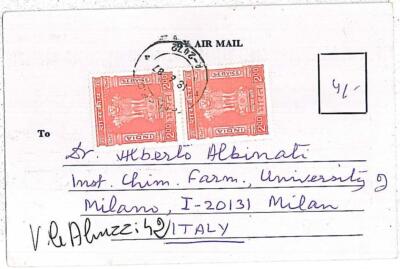 BY AIR MAIL
4/-
SERVICE
INDIA
2.00
SERVICE
INDIA
2.00
To
Dr. Alberto Albinati
Inst. Chim. Farm., University of
Milano, I-20131 Milan
V.le Abruzzi 42
ITALY